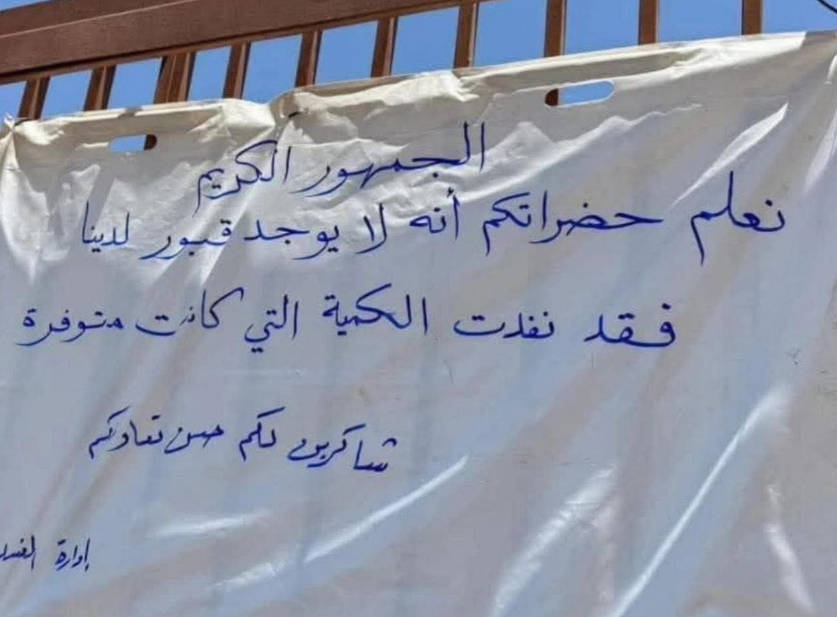 الجمهور الكريم
نعلم حضراتكم أنه لا يوجد قبور لدينا
فقد نفدت الكمية التي كانت متوفرة
شاكرين لكم حسن تعاونكم
إدارة